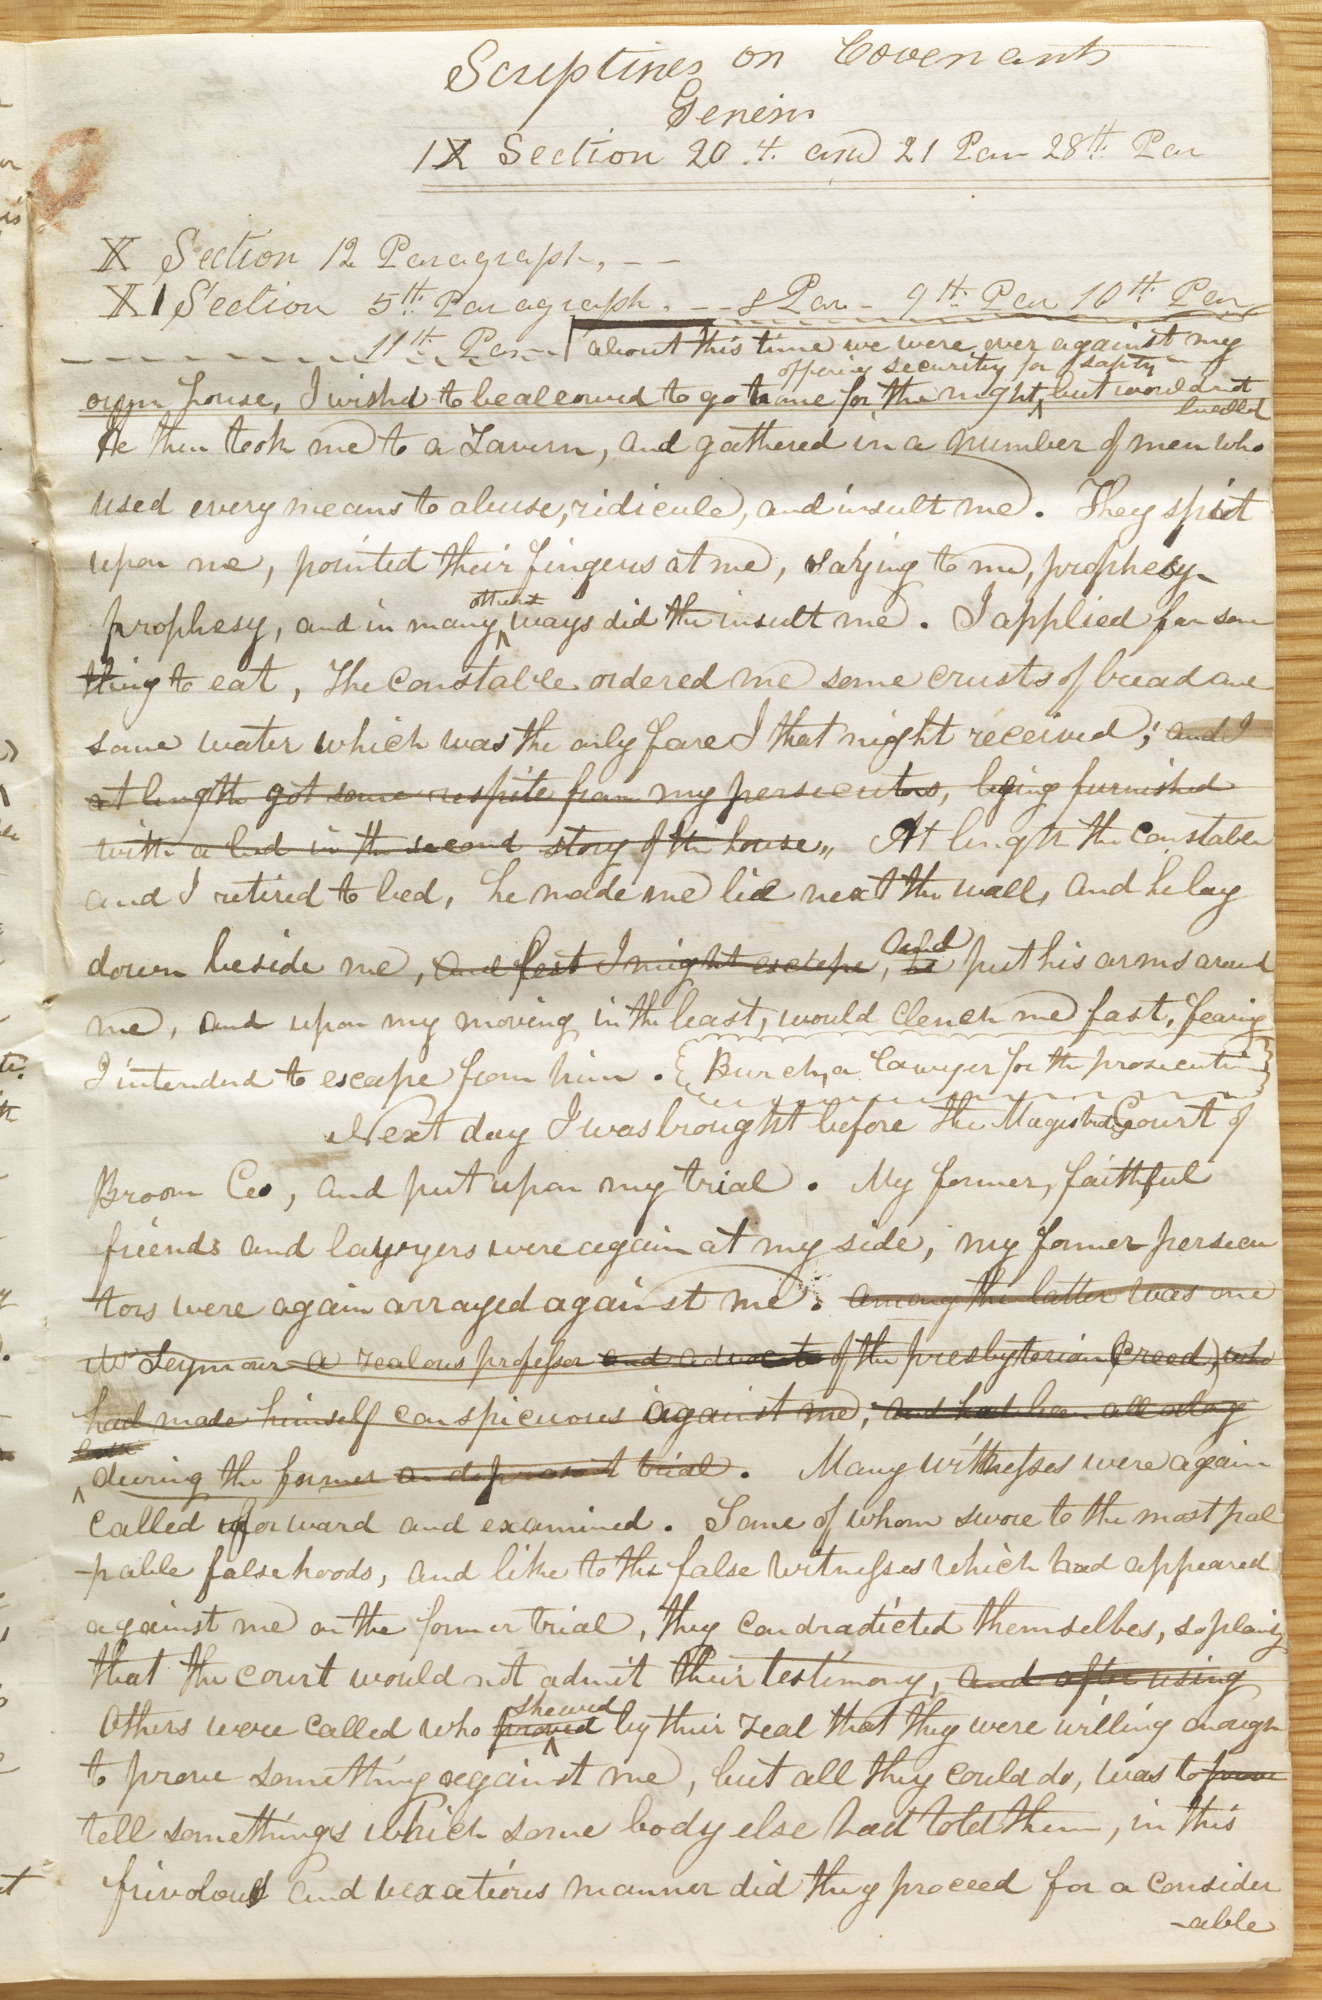 Scriptures on Covenants
Genesis
IX Section 20.th. and 21 Par 28th. Par
X Section 12 Paragraph, - -
XI Section 5th. Paragraph. - - 8 Par - 9th. Par 10th. Par
11th. Par - about this time we were over against my
offering security for safty
own house, I wished to be allowed to go home for the night, but would not
He then took me to a Tavern, and gathered in a number of men who
used every means to abuse, ridicule, and insult me. They spit
upon me, pointed their fingers at me, saying to me, prophecy
others
prophesy, and in many ways did the insult me. I applied for some
thing to eat, The constable ordered me some crusts of bread and
some water which was the only fare I that night received; and I
at length got some respite from my persecutors, being furnished
with a bed in the second story of the house,, At length the constable
and I retired to bed, he made me lie next the wall, and he lay
and
down beside me, and lest I might escape, he put his arms around
me, and upon my moving in the least, would clench me fast, fearing
I intended to escape from him. Burch, a lawyer for the prosecution
Next day I was brought before the Magistrates Court of
Broom Co, and put upon my trial. My former, faithful
friends and lawyers were again at my side, my former persecu
tors were again arrayed against me. among the latter was one
Mr Seymour a zealous professor and advocate of the presbyterian Creed, who
had made himself conspicuous against me, and had been all along
both
during the former and present trial. Many witnesses were again
called forward and examined. Some of whom swore to the most pal
-pable falsehoods, and like to the false witnesses which had appeared
against me on the former trial, they condradicted themselbes, so plainly
that the court would not admit their testimony, and after using
shewed
Others were called who proved by their zeal that they were willing enough
to prove something against me, but all they could do, was to prove
tell somethings which some body else had told them, in this
frivolous and vexatious manner did they proceed for a consider
-able